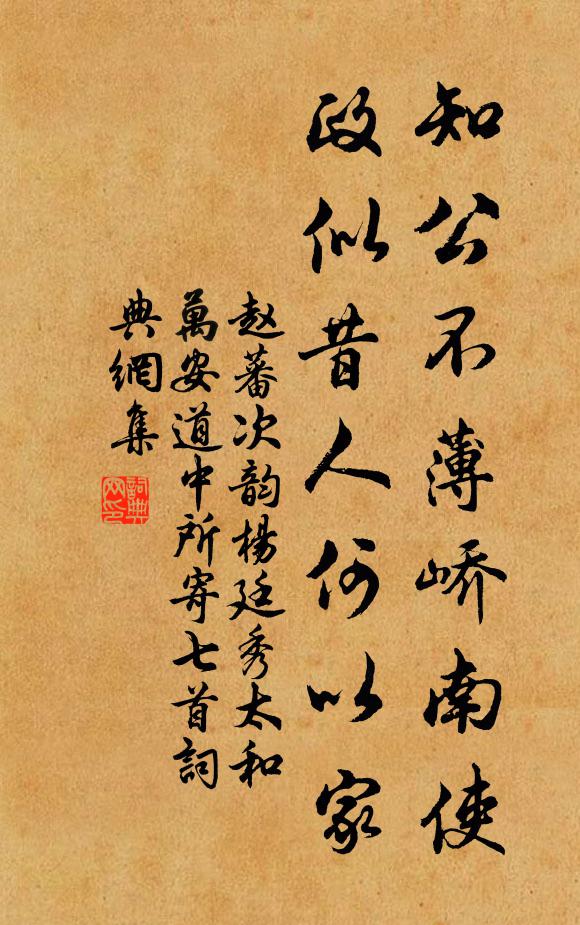 知公不薄峤南使
政似昔人何以家
赵蕃次韵楊廷秀太和
萬安道中所寄七首詞
典網集
詞典
网印